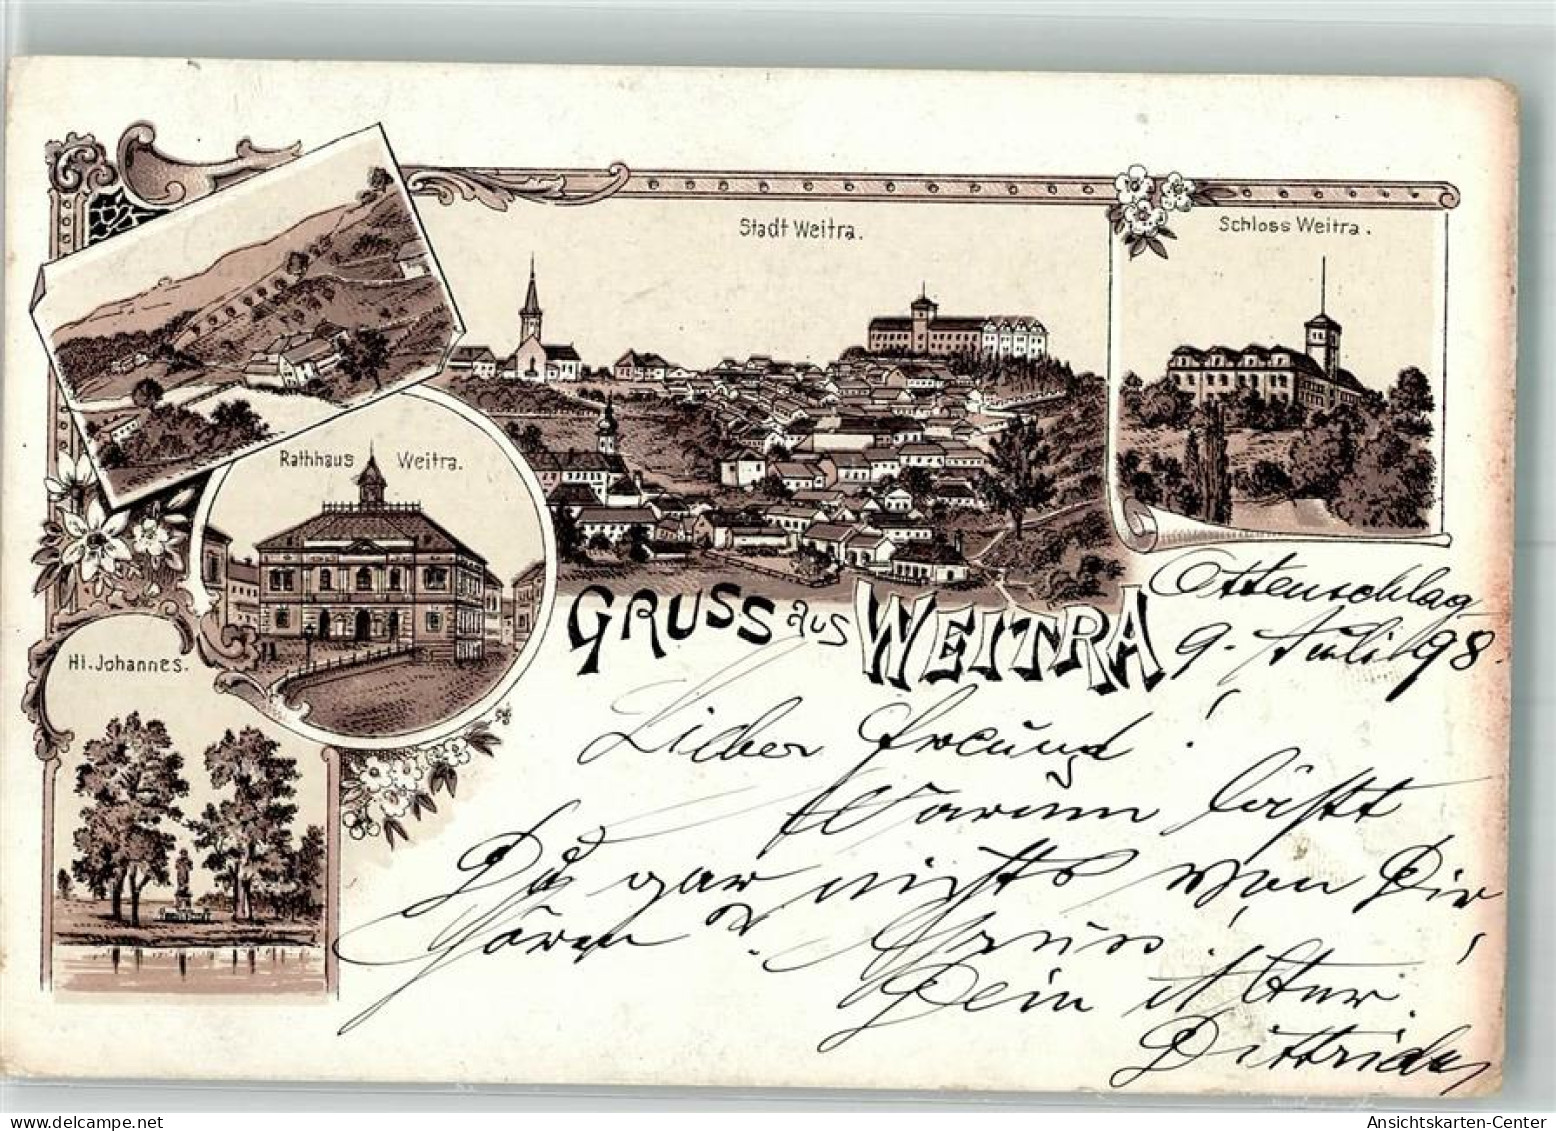 Stadt Weitra.
Schloss Weitra.
Rathhaus Weitra.
Hl. Johannes.
GRUSS aus WEITRA
Ottenschlag
9. Juli 98.
Lieber Freund!
Warum läßt
Du gar nichts von Dir
hören? Gruss!
Dein Alter
Dittrich
delcampe.net
Ansichtskarten-Center